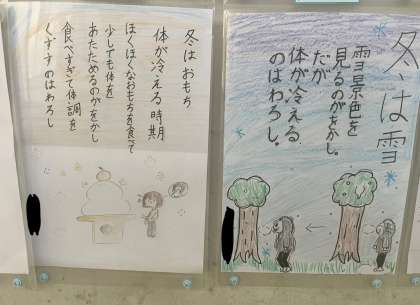 冬は雪
雪景色を
見るのがをかし。
だが
体が冷える
のはわろし。
冬はおもち
体が冷える時期
ほくほくなおもちを食べて
少しでも体を
あたためるのがをかし
食べすぎて体調を
くずすのはわろし